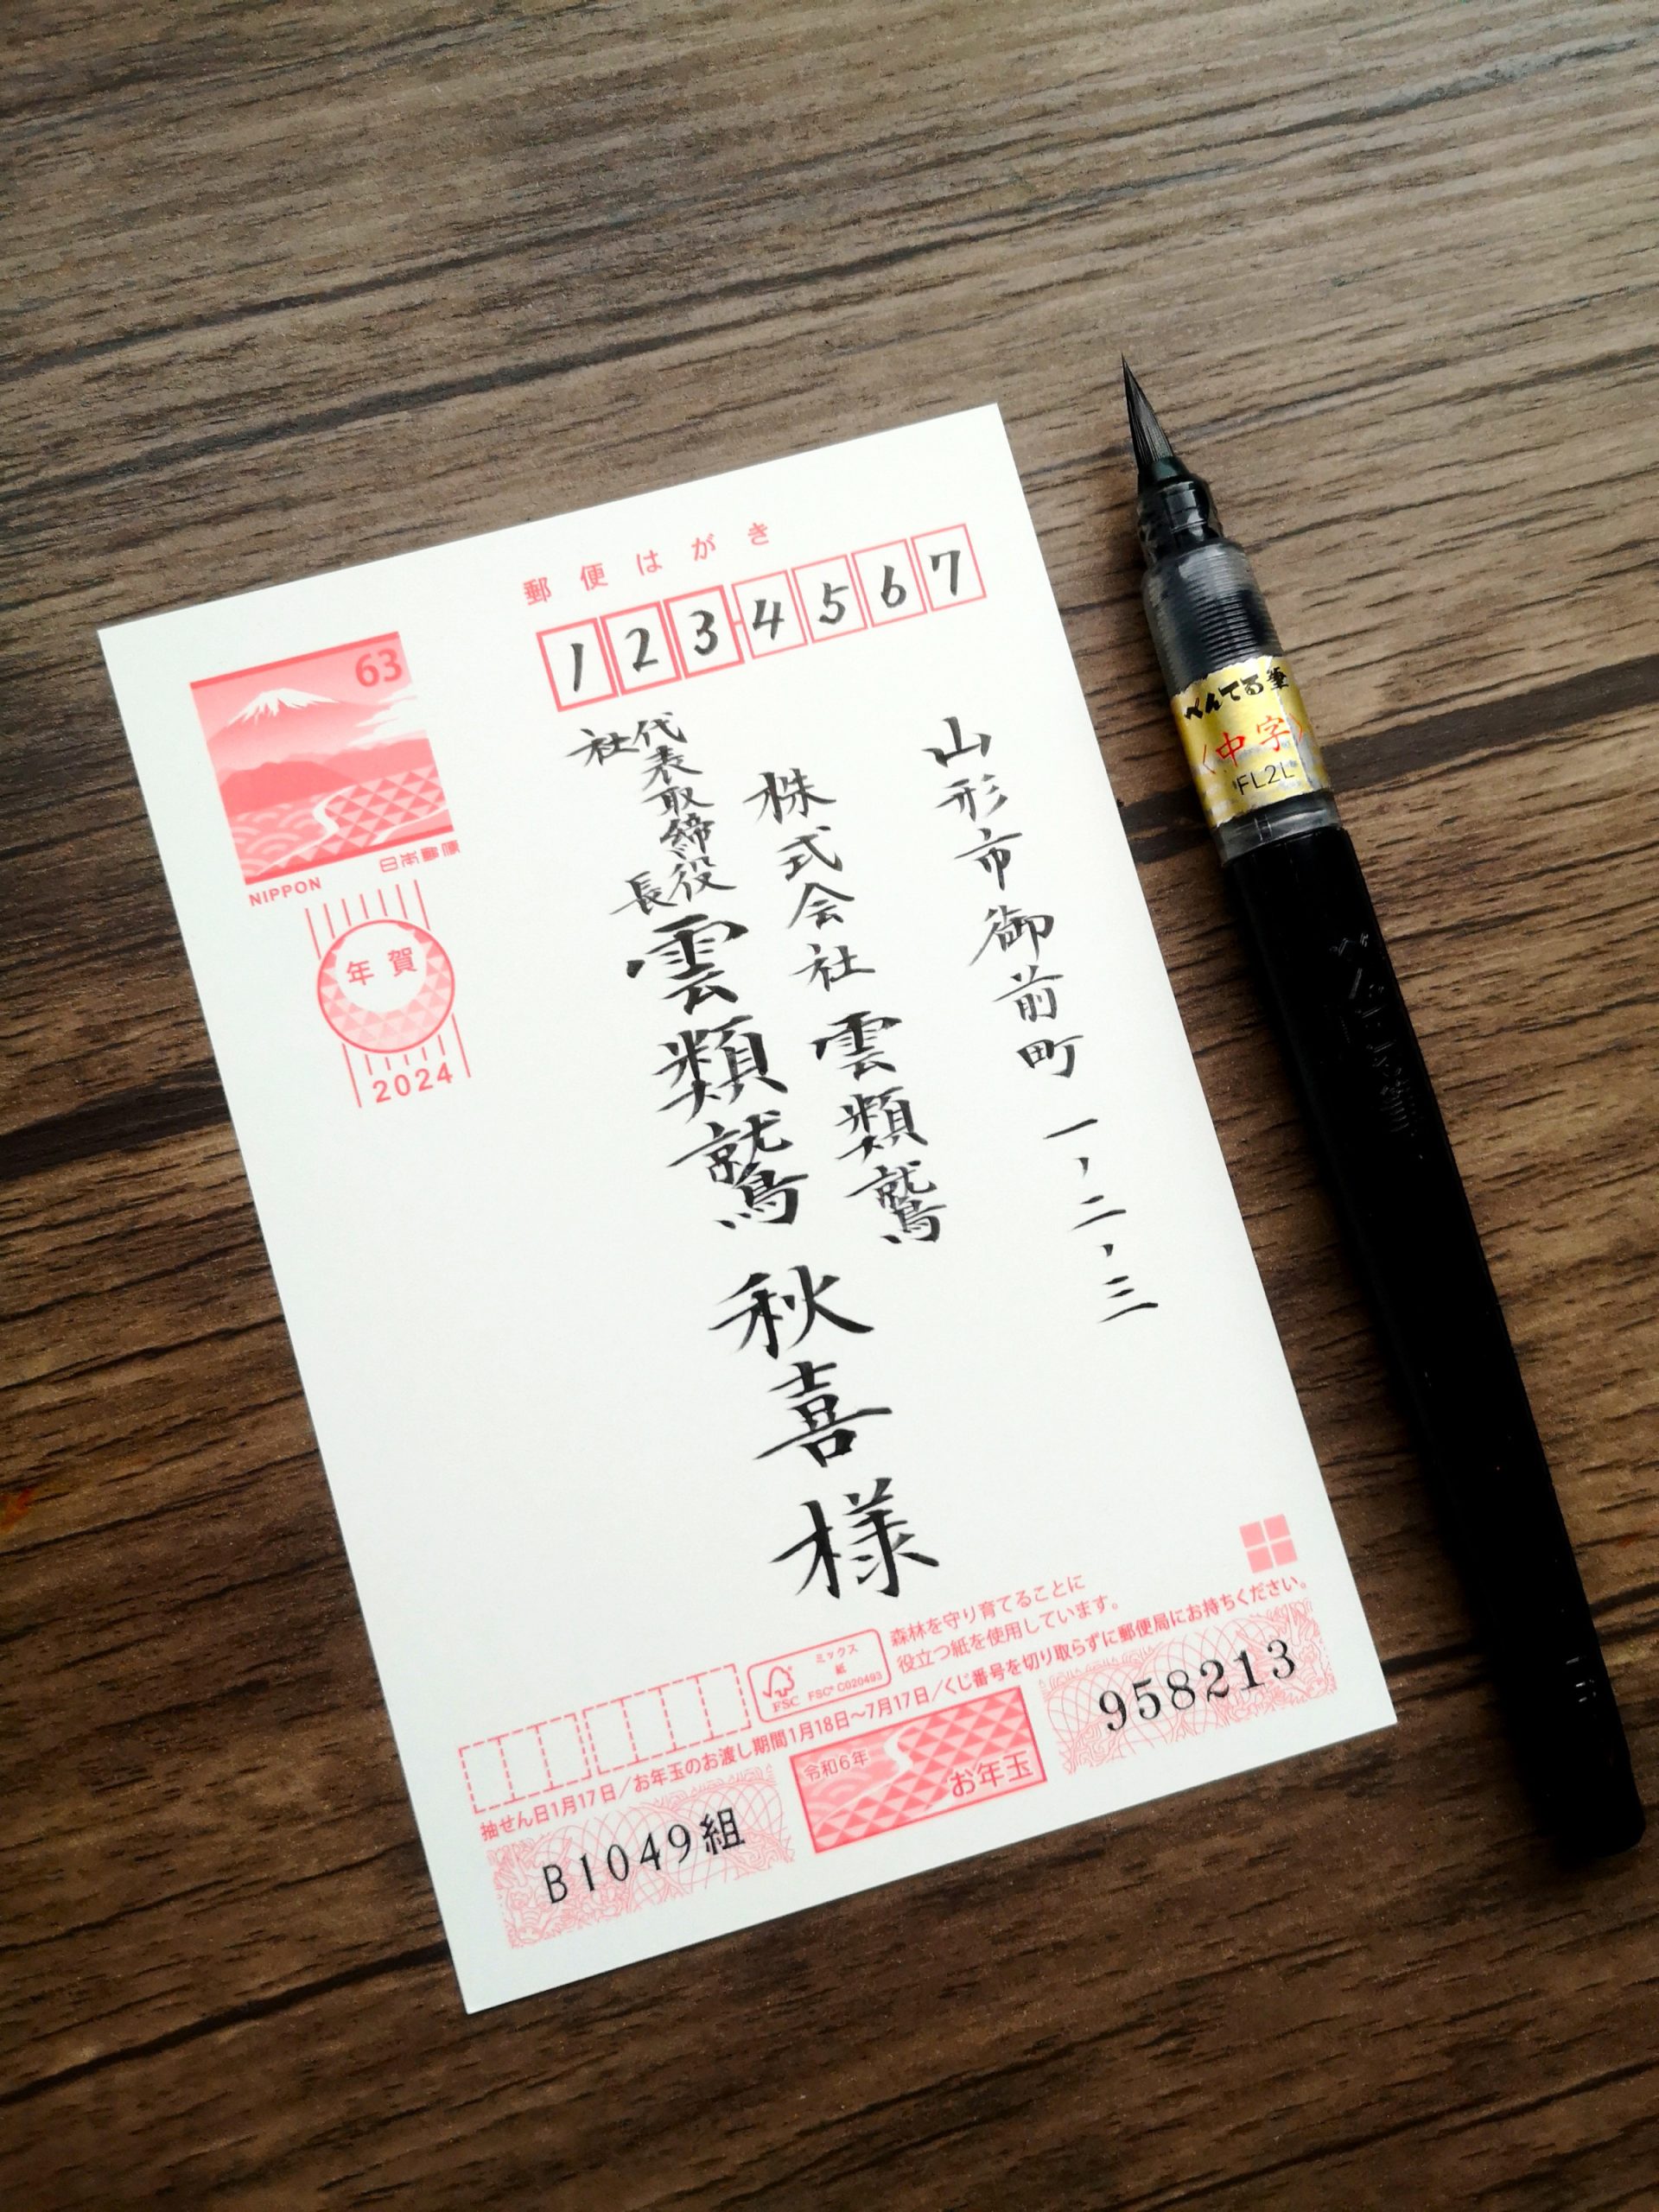 郵便はがき
1234567
63
日本郵便
NIPPON
年賀
2024
山形市御前町 一,二,三
株式会社 雲類鷲
代表取締役
社長
雲類鷲 秋喜 様
ミックス
紙
FSC
FSC® C020493
森林を守り育てることに
役立つ紙を使用しています。
抽せん日1月17日/お年玉のお渡し期間1月18日~7月17日/くじ番号を切り取らずに郵便局にお持ちください。
B1049組
令和6年
お年玉
958213
ぺんてる筆
〈中字〉
FL2L